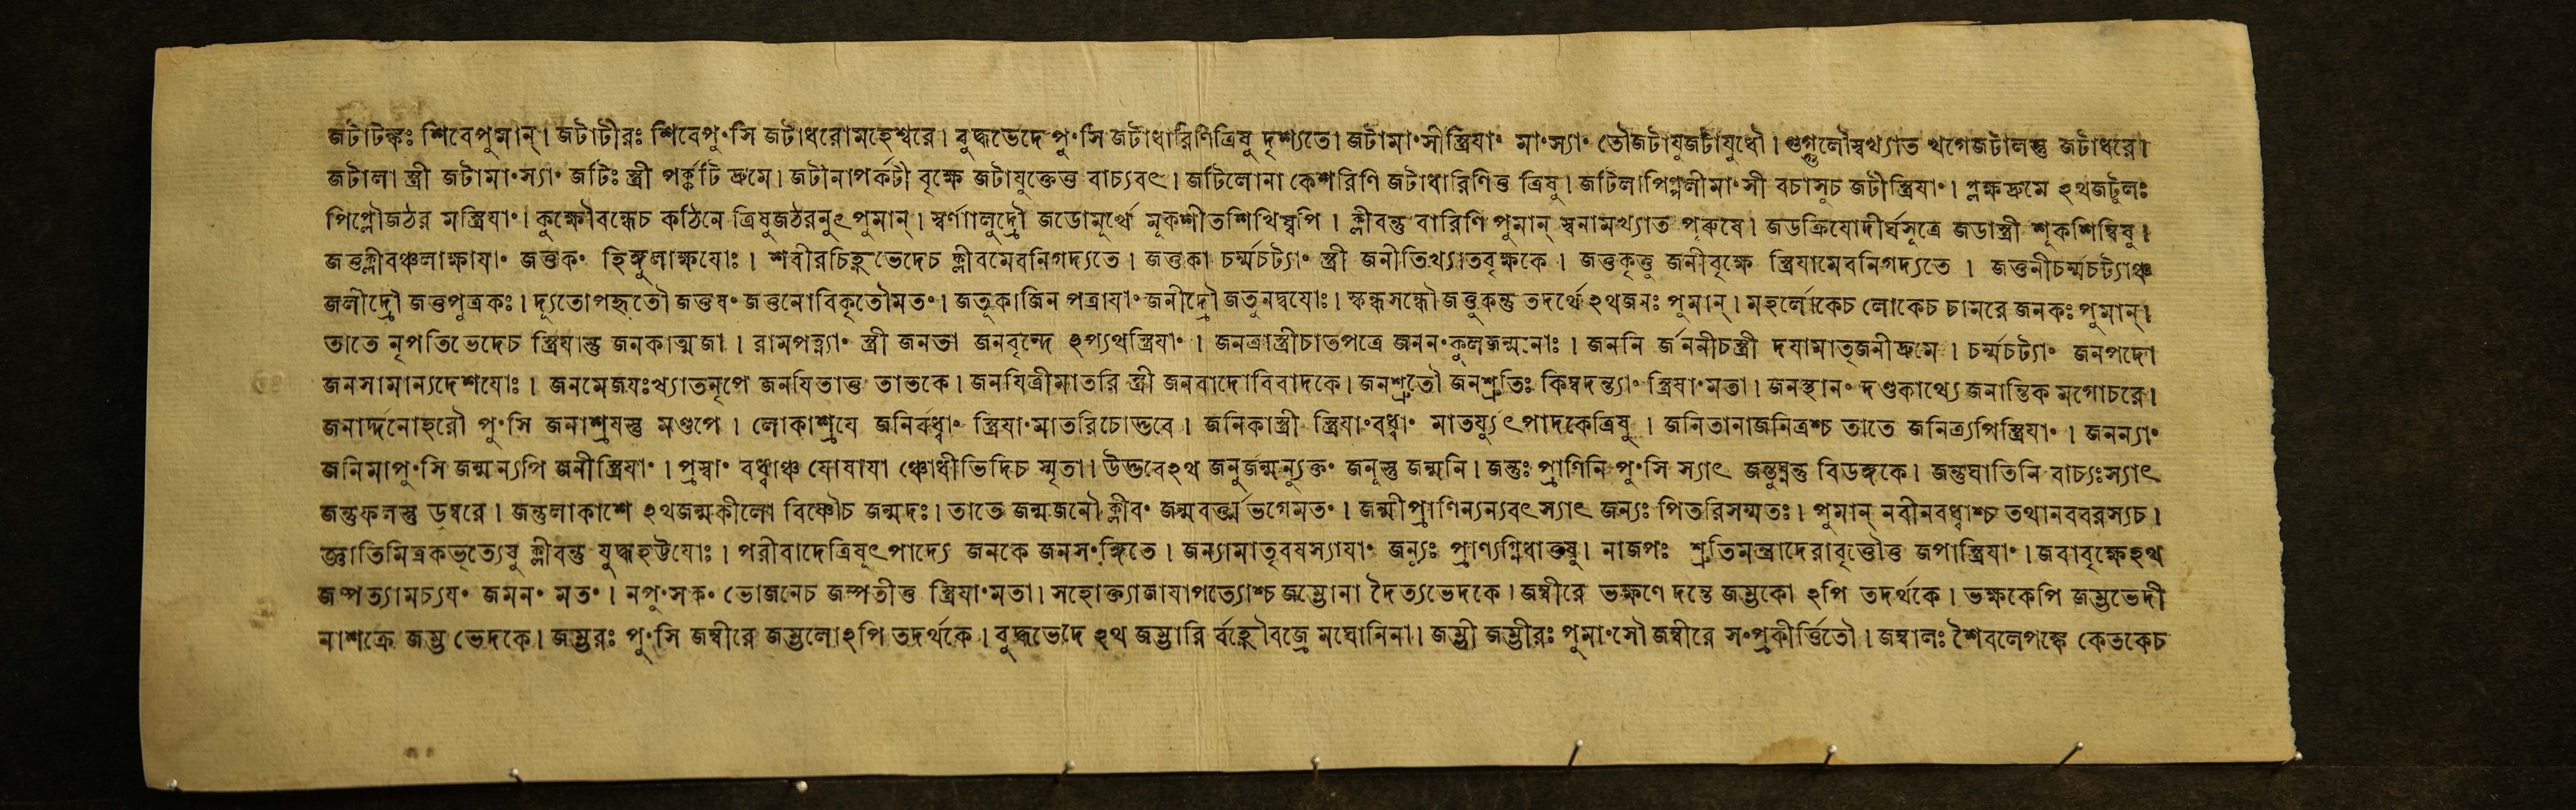 জটাটঙ্কঃ শিবেপুমান্। জটাটীরঃ শিবেপু॰সি জটাধরোমহেশ্বরে। বুদ্ধভেদে পু॰সি জটাধারিণিত্রিষু দৃশ্যতে। জটামা॰সীস্ত্রিযা॰ মা॰স্যা॰ তৌজটাযুজটাযুধৌ। গুগ্গুলৌস্বখ্যাত খগেজটালস্তু জটাধরে।
জটালা স্ত্রী জটামা॰স্যা॰ জটিঃ স্ত্রী পর্ক্কটি দ্রুমে। জটীনাপর্কটী বৃক্ষে জটাযুক্তেত্ত বাচ্যবৎ। জটিলোনা কেশরিণি জটাধারিণিত্ত ত্রিষু। জটিলাপিপ্পলীমা॰সী বচাসুচ জটীস্ত্রিযা॰। প্লক্ষদ্রুমে ঽথজট্টুলঃ
পিপ্লৌজঠর মস্ত্রিযা॰। কুক্ষৌবন্ধেচ কঠিনে ত্রিষুজঠরনুৎ পুমান্। স্বর্ণালুদ্রৌ জডোমূর্খে মূকশীতশিথিম্বপি। ক্লীবন্তু বারিণি পুমান্ স্বনামখ্যাত পূরুষে। জডক্রিযোদীর্ঘসূত্রে জডাস্ত্রী শূকশিম্বিষু।
জত্তক্লীবঞ্চলাক্ষাযা॰ জত্তক॰ হিঙ্গুলাক্ষযোঃ। শরীরচিহ্নভেদেচ ক্লীবমেবনিগদ্যতে। জত্তকা চর্ম্মচট্যা॰ স্ত্রী জনীতিখ্যাতবৃক্ষকে। জত্তকৃত্তু জনীবৃক্ষে স্ত্রিযামেবনিগদ্যতে। জত্তনীচর্ম্মচট্যাঞ্চ
জলীদ্রৌ জত্তপুত্রকঃ। দ্যূতোপহৃতৌ জত্তষ॰ জত্তনোবিকৃতৌমত॰। জতূকাজিন পত্রাযা॰ জনীদ্রৌ জতুনদ্বযোঃ। স্কন্ধসন্ধৌ জত্তুকন্তু তদর্থে ঽথজনঃ পুমান্। মহর্লোকেচ লোকেচ চামরে জনকঃ পুমান্।
তাতে নৃপতিভেদেচ স্ত্রিযান্তু জনকাত্মজা। রামপত্ন্যা॰ স্ত্রী জনতা জনবৃন্দে ঽপ্যথস্ত্রিযা॰। জনত্রাস্ত্রীচাতপত্রে জনন॰কুলজন্মনোঃ। জননি র্জননীচস্ত্রী দযামাতৃজনীদ্রুমে। চর্ম্মচট্যা॰ জনপদো
জনসামান্যদেশযোঃ। জনমেজযঃখ্যাতনৃপে জনযিতাত্ত তাতকে। জনযিত্রীমাতরি স্ত্রী জনবাদোবিবাদকে। জনশ্রুতৌ জনশ্রুতিঃ কিম্বদন্ত্যা॰ স্ত্রিযা॰মতা। জনস্থান॰ দণ্ডকাখ্যে জনান্তিক মগোচরে।
জনার্দ্দনোহরৌ পু॰সি জনাশ্রযস্তু মণ্ডপে। লোকাশ্রযে জনির্বধ্বা॰ স্ত্রিযা॰মাতরিচোদ্ভবে। জনিকাস্ত্রী স্ত্রিযা॰বধ্বা॰ মাতর্যুৎপাদকেত্রিষু। জনিতানাজনিত্রশ্চ তাতে জনিত্র্যপিস্ত্রিযা॰। জনন্যা॰
জনিমাপু॰সি জন্মন্যপি জনীস্ত্রিযা॰। পুস্বা॰ বধ্বাঞ্চ যোষাযা ঞ্চোধীভিদিচ স্মৃতা। উদ্ভবেঽথ জনুর্জন্মন্যুক্ত॰ জনূস্তু জন্মনি। জন্তুঃ প্রাণিনি পু॰সি স্যাৎ জন্তুঘ্নন্তু বিডঙ্গকে। জন্তুঘাতিনি বাচ্যঃস্যাৎ
জন্তুফলস্তু ডুম্বরে। জন্তুলাকাশে ঽথজন্মকীলো বিষ্ণৌচ জন্মদঃ। তাতে জন্মজনৌ ক্লীব॰ জন্মবর্ত্ত্মভগেমত॰। জন্মীপ্রাণিন্যন্যবৎ স্যাৎ জন্যঃ পিতরিসম্মতঃ। পুমান্ নবীনবধ্বাশ্চ তথানববরস্যচ।
জ্ঞাতিমিত্রকভৃত্যেষু ক্লীবন্তু যুদ্ধহট্টযোঃ। পরীবাদেত্রিষূৎপাদ্যে জনকে জনস॰ঙ্গিতে। জন্যামাতৃবযস্যাযা॰ জন্যুঃ প্রাণ্যগ্নিধাতৃষু। নাজপঃ শ্রুতিমন্ত্রাদেরাবৃত্তৌত্ত জপাস্ত্রিযা॰। জবাবৃক্ষেঽথ
জম্পত্যামচ্যয॰ জমন॰ মত॰। নপু॰সক॰ ভোজনেচ জম্পতীত্ত স্ত্রিযা॰মতা। সহোক্ত্যাজাযাপত্যোশ্চ জম্ভোনা দৈত্যভেদকে। জম্বীরে ভক্ষণে দন্তে জম্ভকো ঽপি তদর্থকে। ভক্ষকেপি জম্ভভেদী
নাশক্রে জম্ভ ভেদকে। জম্ভরঃ পু॰সি জম্বীরে জম্ভলোঽপি তদর্থকে। বুদ্ধভেদে ঽথ জম্ভারি র্বহ্নৌবজ্রে মঘোনিনা। জম্ভী জম্ভীরঃ পুমা॰সৌ জম্বীরে স॰প্রকীর্ত্তিতৌ। জম্বালঃ শৈবলেপঙ্কে কেতকেচ